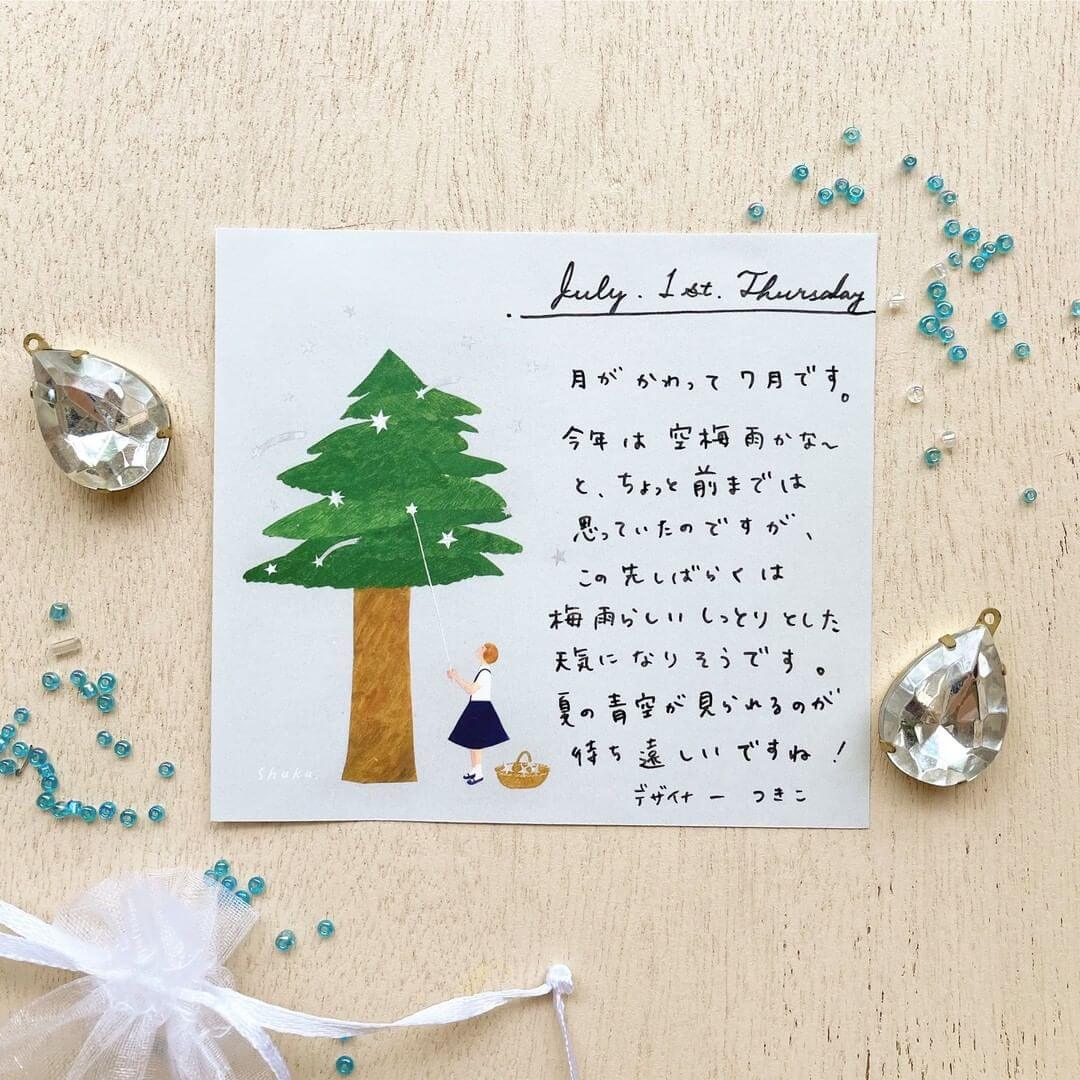 July. 1st. Thursday
月がかわって7月です。
今年は空梅雨かな〜
と、ちょっと前までは
思っていたのですが、
この先しばらくは
梅雨らしいしっとりとした
天気になりそうです。
夏の青空が見られるのが
待ち遠しいですね!
デザイナー つきこ
Shuku.